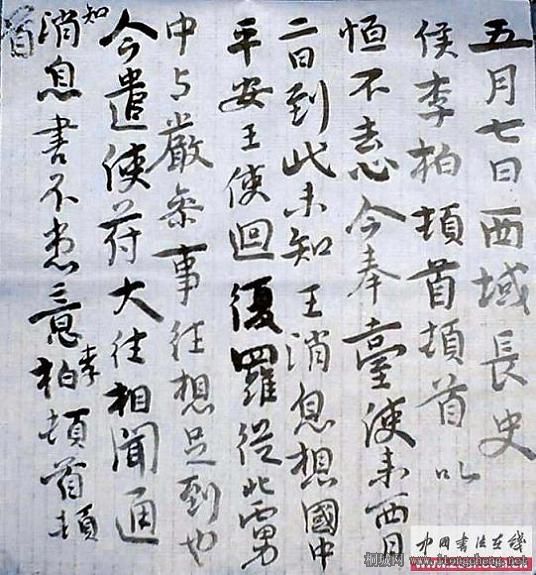 五月七日西域長史
侯李柏頓首頓首以
恒不去心今奉臺使來西月
二日到此未知王消息想國中
平安王使迴復羅從北虜
中与嚴參事往想是到也
今遣使苻大往相聞通
知
消息書不盡意李柏頓首頓
首
中国书法在线
桐城网